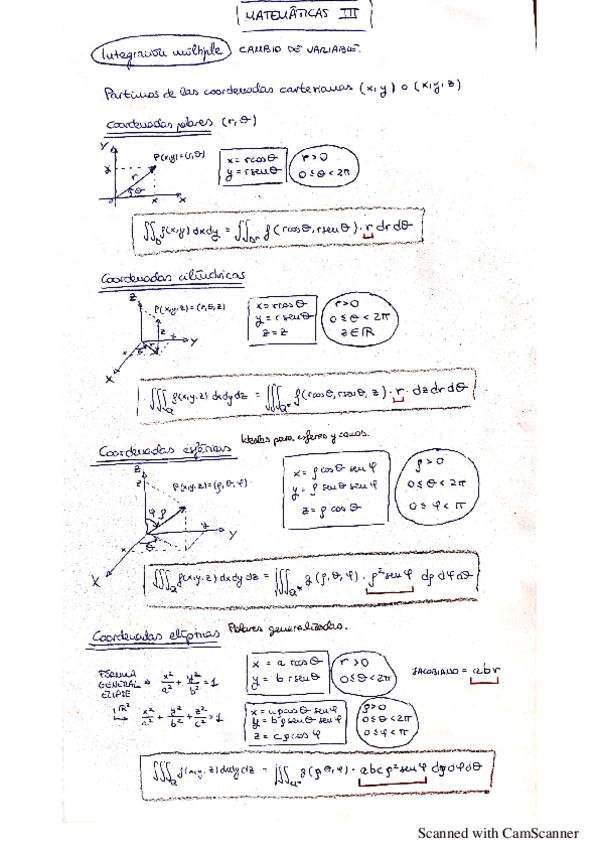 MATEMÁTICAS III
Integración múltiple CAMBIO DE VARIABLE.
Partimos de las coordenadas cartesianas (x,y) o (x,y,z)
Coordenadas polares (r,θ)
Y
P(x,y)=(r,θ)
x = r cosθ
y = r senθ
r>0
0≤θ<2π
y
r
θ
x
X
∬_D f(x,y) dxdy = ∬_D* f(r cosθ, r senθ)· r dr dθ
Coordenadas cilíndricas
Z
P(x,y,z)=(r,θ,z)
x = r cosθ
y = r senθ
z = z
r>0
0≤θ<2π
z∈ℝ
Y
X
∭_Ω f(x,y,z) dxdydz = ∭_Ω* f(r cosθ, r senθ, z)· r· dz dr dθ
Coordenadas esféricas Ideales para esferas y conos.
Z
P(x,y,z)=(ρ,θ,φ)
x = ρ cosθ senφ
y = ρ senθ senφ
z = ρ cosθ
ρ>0
0≤θ<2π
0≤φ<π
φ ρ
Y
θ
X
∭_Ω f(x,y,z) dxdydz = ∭_Ω* g(ρ,θ,φ)· ρ² senφ dρ dφ dθ
Coordenadas elípticas Polares generalizadas.
FÓRMULA GENERAL ELIPSE → x²/a² + y²/b² = 1
x = a r cosθ
y = b r senθ
r>0
0≤θ<2π
JACOBIANO = abr
ℝ³ x²/a² + y²/b² + z²/c² = 1
x = aρcosθ senφ
y = bρsenθ senφ
z = cρcosφ
ρ>0
0≤θ<2π
0≤φ<π
∭_Ω f(x,y,z) dxdydz = ∭_Ω* g(ρ,θ,φ)· abcρ² senφ dρ dφ dθ
Scanned with CamScanner